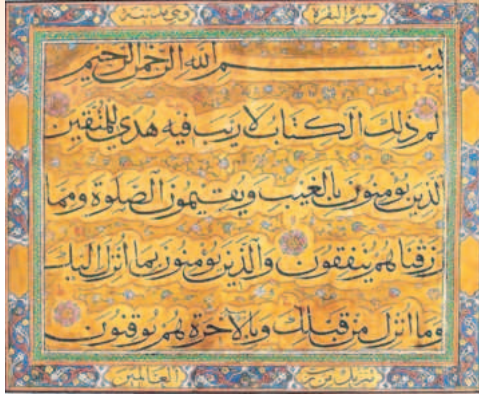 سورة البقرة وهي مدنية
بسم الله الرحمن الرحيم
الم ذلك الكتاب لا ريب فيه هدي للمتقين
الذين يؤمنون بالغيب ويقيمون الصلوة ومما
رزقناهم ينفقون والذين يؤمنون بما انزل اليك
وما انزل من قبلك وبالآخرة هم يوقنون
تنزيل من رب العالمين